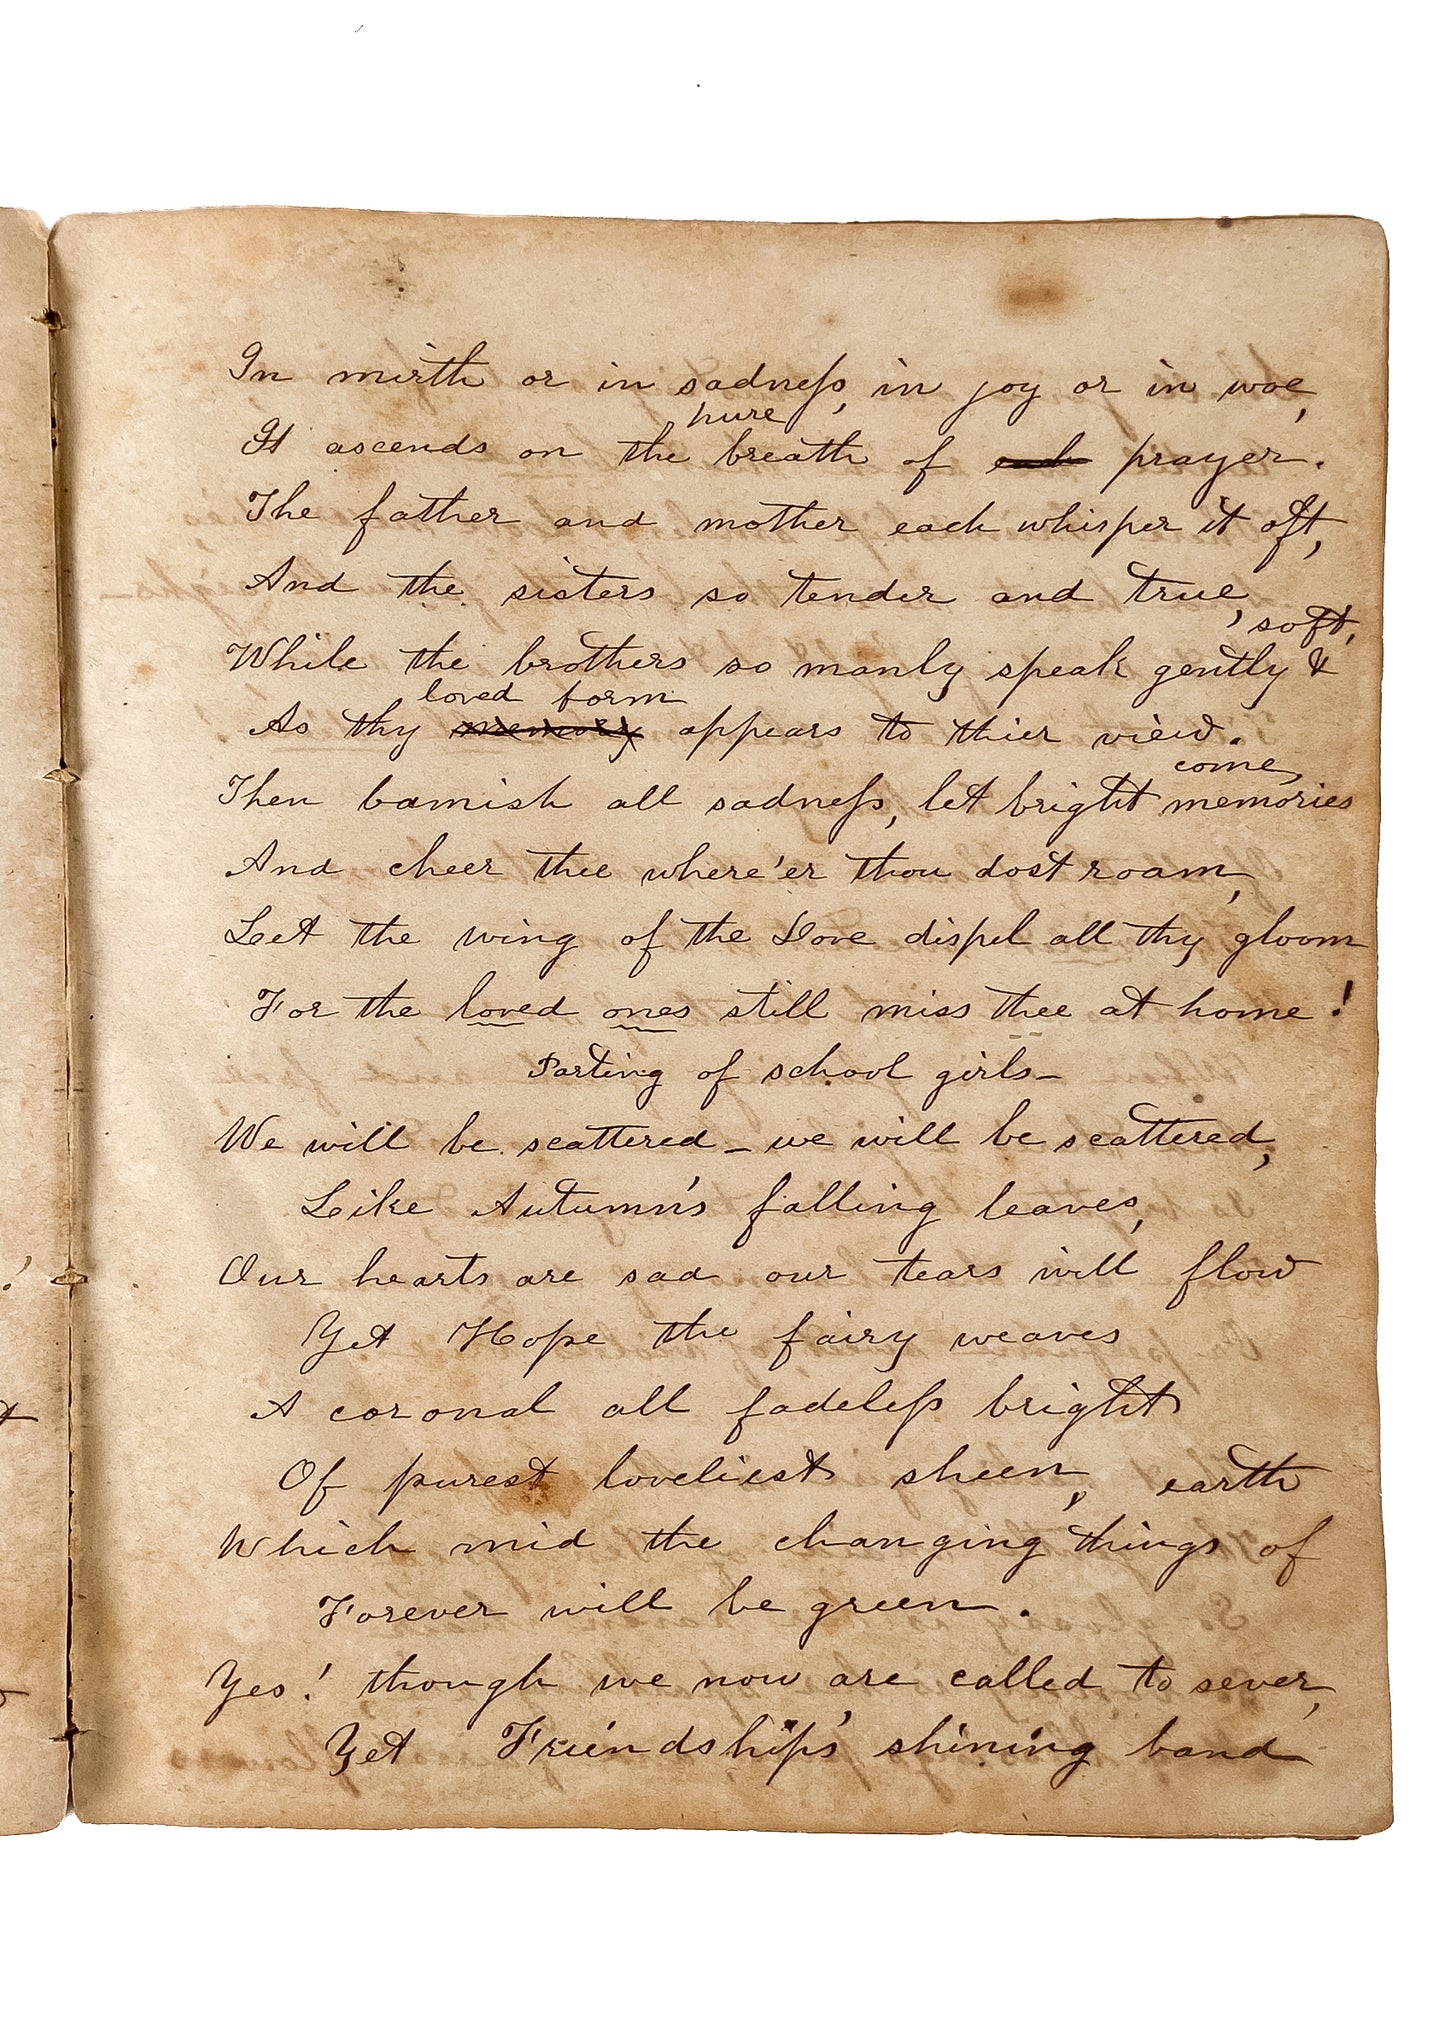 In mirth or in sadness, in joy or in woe,
pure
It ascends on the breath of each prayer.
The father and mother each whisper it oft,
And the sisters so tender and true,
soft,
While the brothers so manly speak gently &
loved form
As thy memory appears to thier view.
come,
Then banish all sadness, let bright memories
And cheer thee where'er thou dost roam,
Let the wing of the Dove dispel all thy gloom
For the loved ones still miss thee at home!
Parting of school girls–
We will be scattered – we will be scattered,
Like Autumn's falling leaves,
Our hearts are sad our tears will flow
Yet Hope the fairy weaves
A coronal all fadeless bright
Of purest loveliest sheen, earth
Which mid the changing things of
Forever will be green.
Yes! though we now are called to sever,
Yet Friendship's shining band